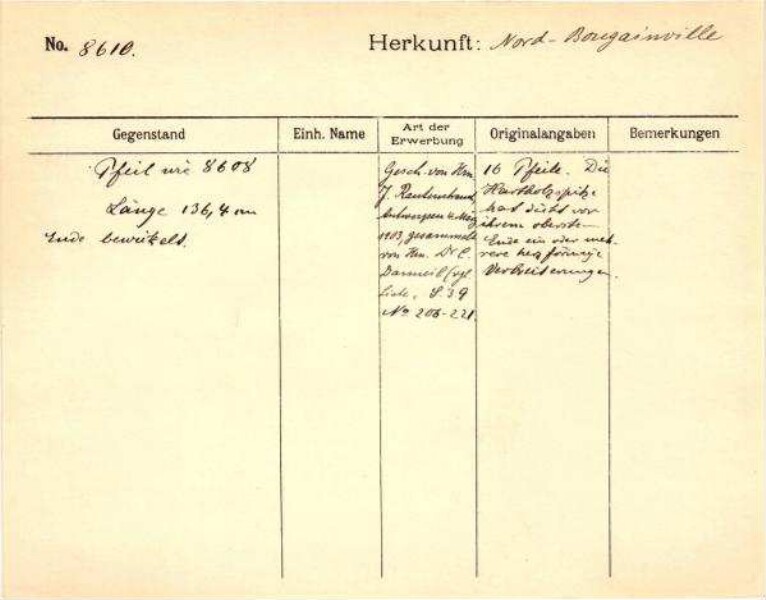 No. 8610.
Herkunft: Nord-Bougainville
Gegenstand
Einh. Name
Art der Erwerbung
Originalangaben
Bemerkungen
Pfeil wie 8608
Länge 136,4 cm
Ende bewickelt.
Gesch. von Hrn.
J. Rautenstrauch,
Antwerpen
1903, gesammelt
von Hrn. Dr. C.
Danneil (vgl.
Liste, S. 39
No 206-221.
16 Pfeile. Die
Hartholzspitze
hat dicht vor
ihrem obersten
Ende ein oder meh-
rere förmige
Verbreiterungen.